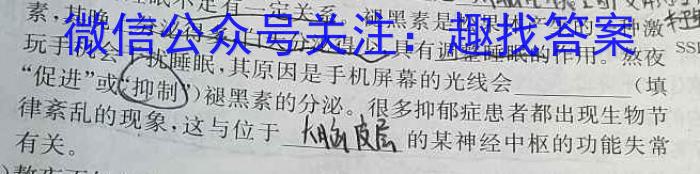 足有一定关系
素,其
微信公众号关注:趣找答案
具有调整睡眠的作用。熬夜
玩手 扰睡眠,其原因是手机屏幕的光线会______(填
“促进”或“抑制”)褪黑素的分泌。很多抑郁症患者都出现生物节
律紊乱的现象,这与位于 大脑皮层 的某神经中枢的功能失常
有关。